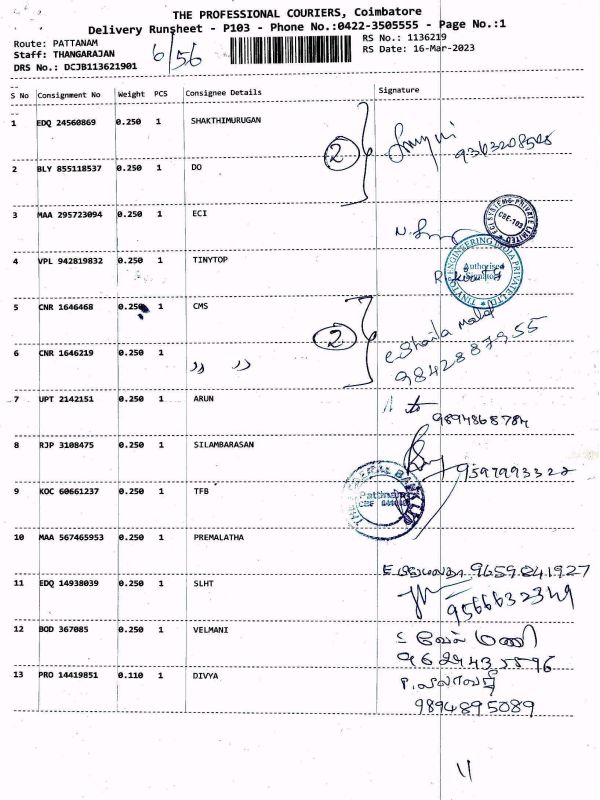 THE PROFESSIONAL COURIERS, Coimbatore
Delivery Runsheet - P103 - Phone No.:0422-3505555 - Page No.:1
Route: PATTANAM
RS No.: 1136219
Staff: THANGARAJAN
RS Date: 16-Mar-2023
DRS No.: DCJB113621901
6/56
S No Consignment No Weight PCS Consignee Details Signature
1 EDQ 24560869 0.250 1 SHAKTHIMURUGAN
2
2 BLY 855118537 0.250 1 DO
3 MAA 295723094 0.250 1 ECI
ECI SYSTEMS PRIVATE LIMITED
CBE-103
4 VPL 942819832 0.250 1 TINYTOP
TINYTOP ENGINEERING INDIA PRIVATE LTD.
Authorised
5 CNR 1646468 0.250 1 CMS
2
9842887955
6 CNR 1646219 0.250 1 ,, ,,
7 UPT 2142151 0.250 1 ARUN
9894868784
8 RJP 3108475 0.250 1 SILAMBARASAN
9597993322
9 KOC 60661237 0.250 1 TFB
THE FEDERAL BANK LTD
Pattanam
10 MAA 567465953 0.250 1 PREMALATHA
9659241927
11 EDQ 14938039 0.250 1 SLHT
9566632349
12 BOD 367085 0.250 1 VELMANI
வேல்மணி
13 PRO 14419851 0.110 1 DIVYA
9894895089